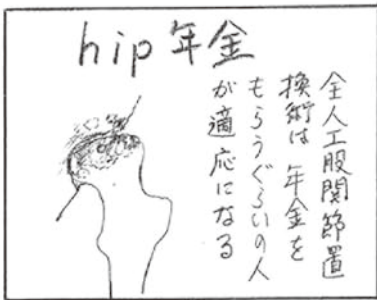 hip年金
全人工股関節置
換術は 年金を
もらうぐらいの人
が適応になる